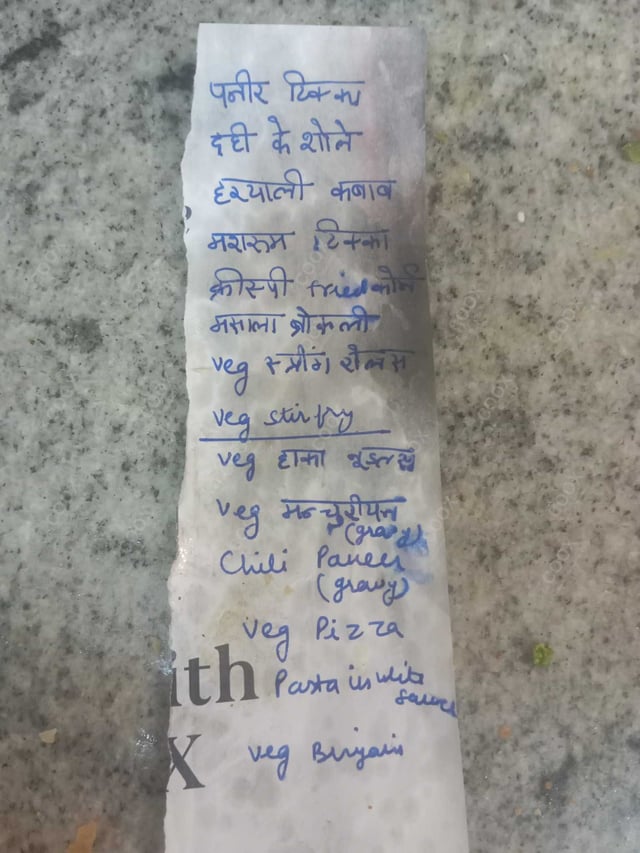 पनीर टिक्का
दही के शोले
हरयाली कबाब
मशरूम टिक्का
क्रीस्पी fried कोर्न
मसाला ब्रोकली
veg स्प्रींग रोल्स
veg stir fry
veg हाका नूडल्स
veg मन्चुरीयन
(gravy)
Chili Paneer
(gravy)
veg Pizza
ith
Pasta in white
sauce
X
veg Biryani